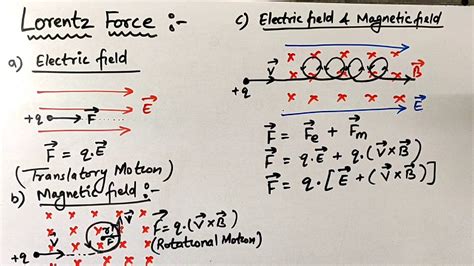 Lorentz Force :-
a) Electric field
E⃗
+q F⃗
F⃗ = q.E⃗
(Translatory Motion)
b) Magnetic field :-
x x x x
V⃗
r
F⃗
+q V⃗
F⃗ = q.(V⃗×B⃗)
(Rotational Motion)
c) Electric field & Magnetic field
x x x x x
+q V⃗ B⃗
x x x x
E⃗
F⃗ = F⃗e + F⃗m
F⃗ = q.E⃗ + q.(V⃗×B⃗)
F⃗ = q.[E⃗ + (V⃗×B⃗)]